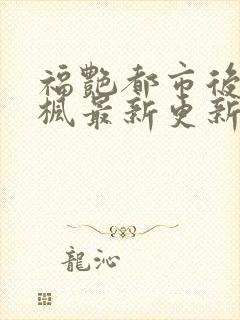 福艷都市後
楓最新更新
龍沁